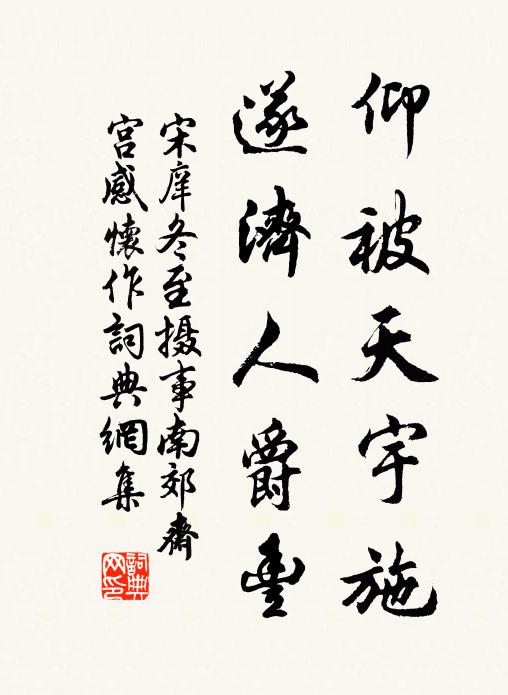 仰被天宇施
遂濟人爵豐
宋庠冬至摄事南郊齋
宮感懷作詞典網集
詞典
网印